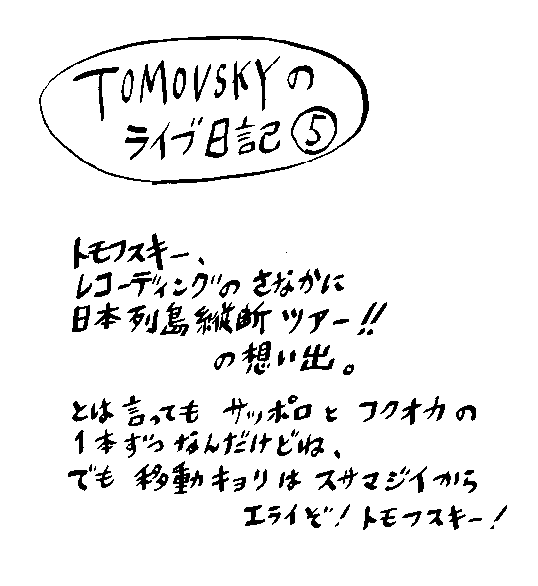 TOMOVSKYの
ライブ日記⑤
トモフスキー、
レコーディングのさなかに
日本列島縦断ツアー!!
の想い出。
とは言ってもサッポロとフクオカの
1本ずつなんだけどね、
でも移動キョリはスサマジイから
エライぞ!トモフスキー!